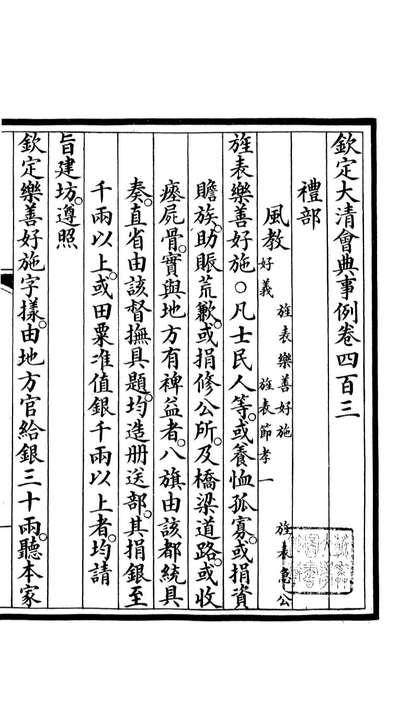 欽定大清會典事例卷四百三
禮部
風教 旌表樂善好施 旌表急公
好義 旌表節孝一
旌表樂善好施○凡士民人等。或養恤孤寡。或捐資
贍族。助賑荒歉。或捐修公所。及橋梁道路。或收
瘞屍骨。實與地方有裨益者。八旗由該都統具
奏。直省由該督撫具題。均造册送部。其捐銀至
千兩以上。或田粟准值銀千兩以上者。均請
旨建坊。遵照
欽定樂善好施字樣。由地方官給銀三十兩。聽本家